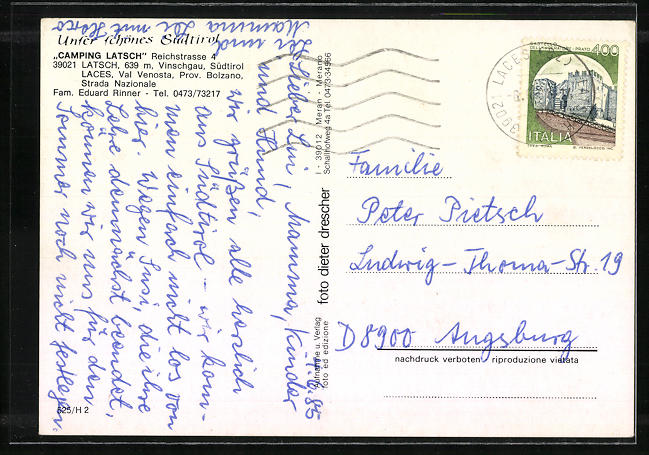 Unser schönes Südtirol
„CAMPING LATSCH" Reichstrasse 4
39021 LATSCH, 639 m, Vinschgau, Südtirol
LACES, Val Venosta, Prov. Bolzano,
Strada Nazionale
Fam. Eduard Rinner - Tel. 0473/73217
1.6.85
Ihr lieben, Mamma, Kinder
und Hund,
wir grüßen alle herzlich
aus Südtirol – wir kom-
men einfach nicht los von
hier. Wegen Susi, die ihre
Lehre demnächst beendet,
können wir uns für den
Sommer noch nicht festlegen.
Mamma
525/H 2
foto dieter drescher
I - 39012 Meran - Merano
Schallhofweg 4a Tel. 0473-34966
Aufnahme u. Verlag
foto ed edizione
400
ITALIA
39021 LACES
Familie
Peter Pietsch
Ludwig-Thoma-Str. 19
D 8900 Augsburg
nachdruck verboten riproduzione vietata